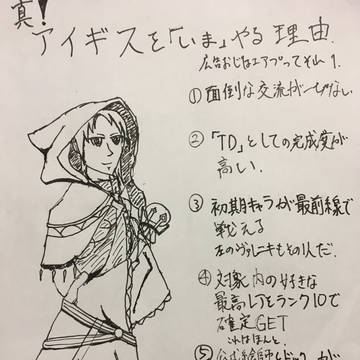 真!
アイギスを「いま」やる理由.
広告おじはエアプってそれ1.
① 面倒な交流が一切ない
② 「TD」としての完成度が
高い.
③ 初期キャラが最前線で
戦える
左のヴェロニキもその1人だ.
④ 対象内の好きな
最高レアをランク10で
確定GET
これはほんと
⑤ 公式絵師